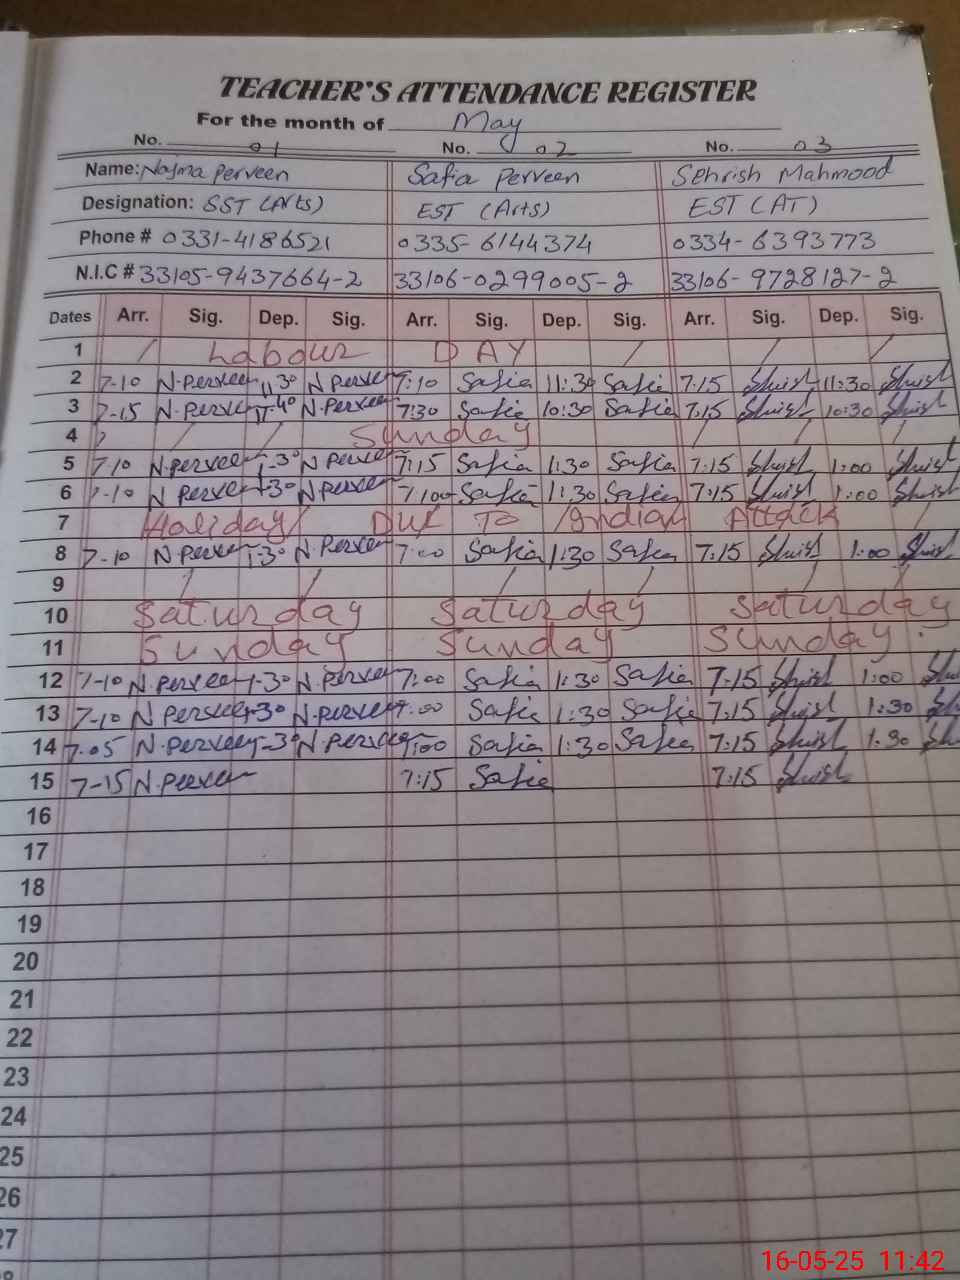 TEACHER'S ATTENDANCE REGISTER
For the month of May
No. 01 No. 02 No. 03
Name: Najma Perveen Safia Perveen Sehrish Mahmood
Designation: SST (Arts) EST (Arts) EST (AT)
Phone # 0331-4186521 0335-6144374 0334-6393773
N.I.C # 33105-9437664-2 33106-0299005-2 33106-9728127-2
Dates Arr. Sig. Dep. Sig. Arr. Sig. Dep. Sig. Arr. Sig. Dep. Sig.
1 Labour DAY
2 7-10 N.Perveen 11-30 N Perveen 7:10 Safia 11:30 Safia 7:15 11:30
3 7-15 N.Perveen 11-40 N.Perveen 7:30 Safia 10:30 Safia 7:15 10:30
4 Sunday
5 7-10 N.Perveen 1-30 N Perveen 7:15 Safia 1:30 Safia 7:15 1:00
6 7-10 N Perveen 1-30 N.Perveen 7:00 Safia 1:30 Safia 7:15 1:00
7 Holiday Due To Indian Attack
8 7-10 N Perveen 1-30 N.Perveen 7:00 Safia 1:30 Safia 7:15 1:00
9
10 Saturday Saturday Saturday
11 Sunday Sunday Sunday
12 7-10 N.Perveen 1-30 N.Perveen 7:00 Safia 1:30 Safia 7:15 1:00
13 7-10 N Perveen 1-30 N.Perveen 7:00 Safia 1:30 Safia 7:15 1:30
14 7-05 N.Perveen 1-30 N.Perveen 7:00 Safia 1:30 Safia 7:15 1:30
15 7-15 N.Perveen 7:15 Safia 7:15
16
17
18
19
20
21
22
23
24
25
26
27
16-05-25 11:42